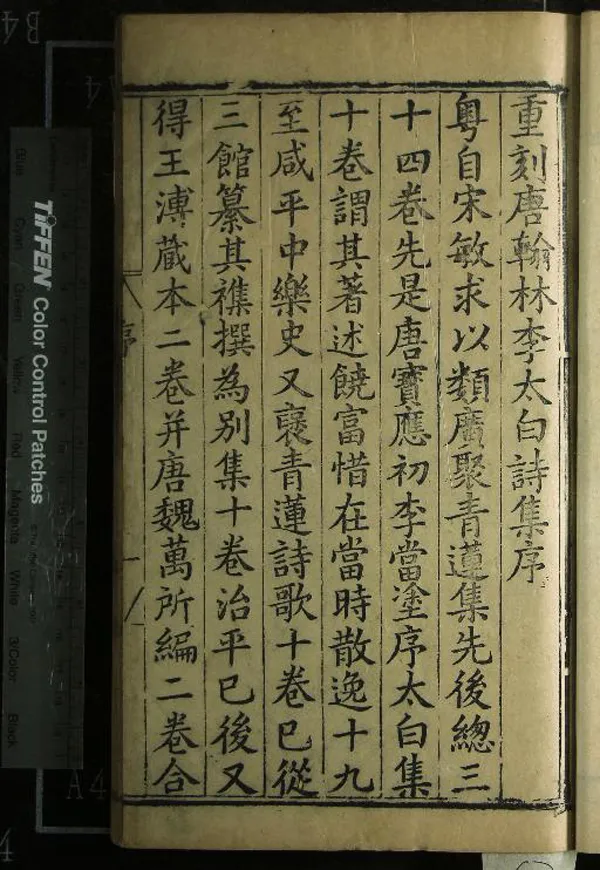 重刻唐翰林李太白詩集序
粤自宋敏求以類廣聚青蓮集先後總三
十四卷先是唐寶應初李當塗序太白集
十卷謂其著述饒富惜在當時散逸十九
至咸平中樂史又裒青蓮詩歌十卷巳從
三館纂其襍撰為別集十卷治平巳後又
得王溥蔵本二卷并唐魏萬所編二卷合
序
TIFFEN Color Control Patches
Blue
Cyan
Green
Yellow
Red
Magenta
White
3/Color
Black
B4
A4